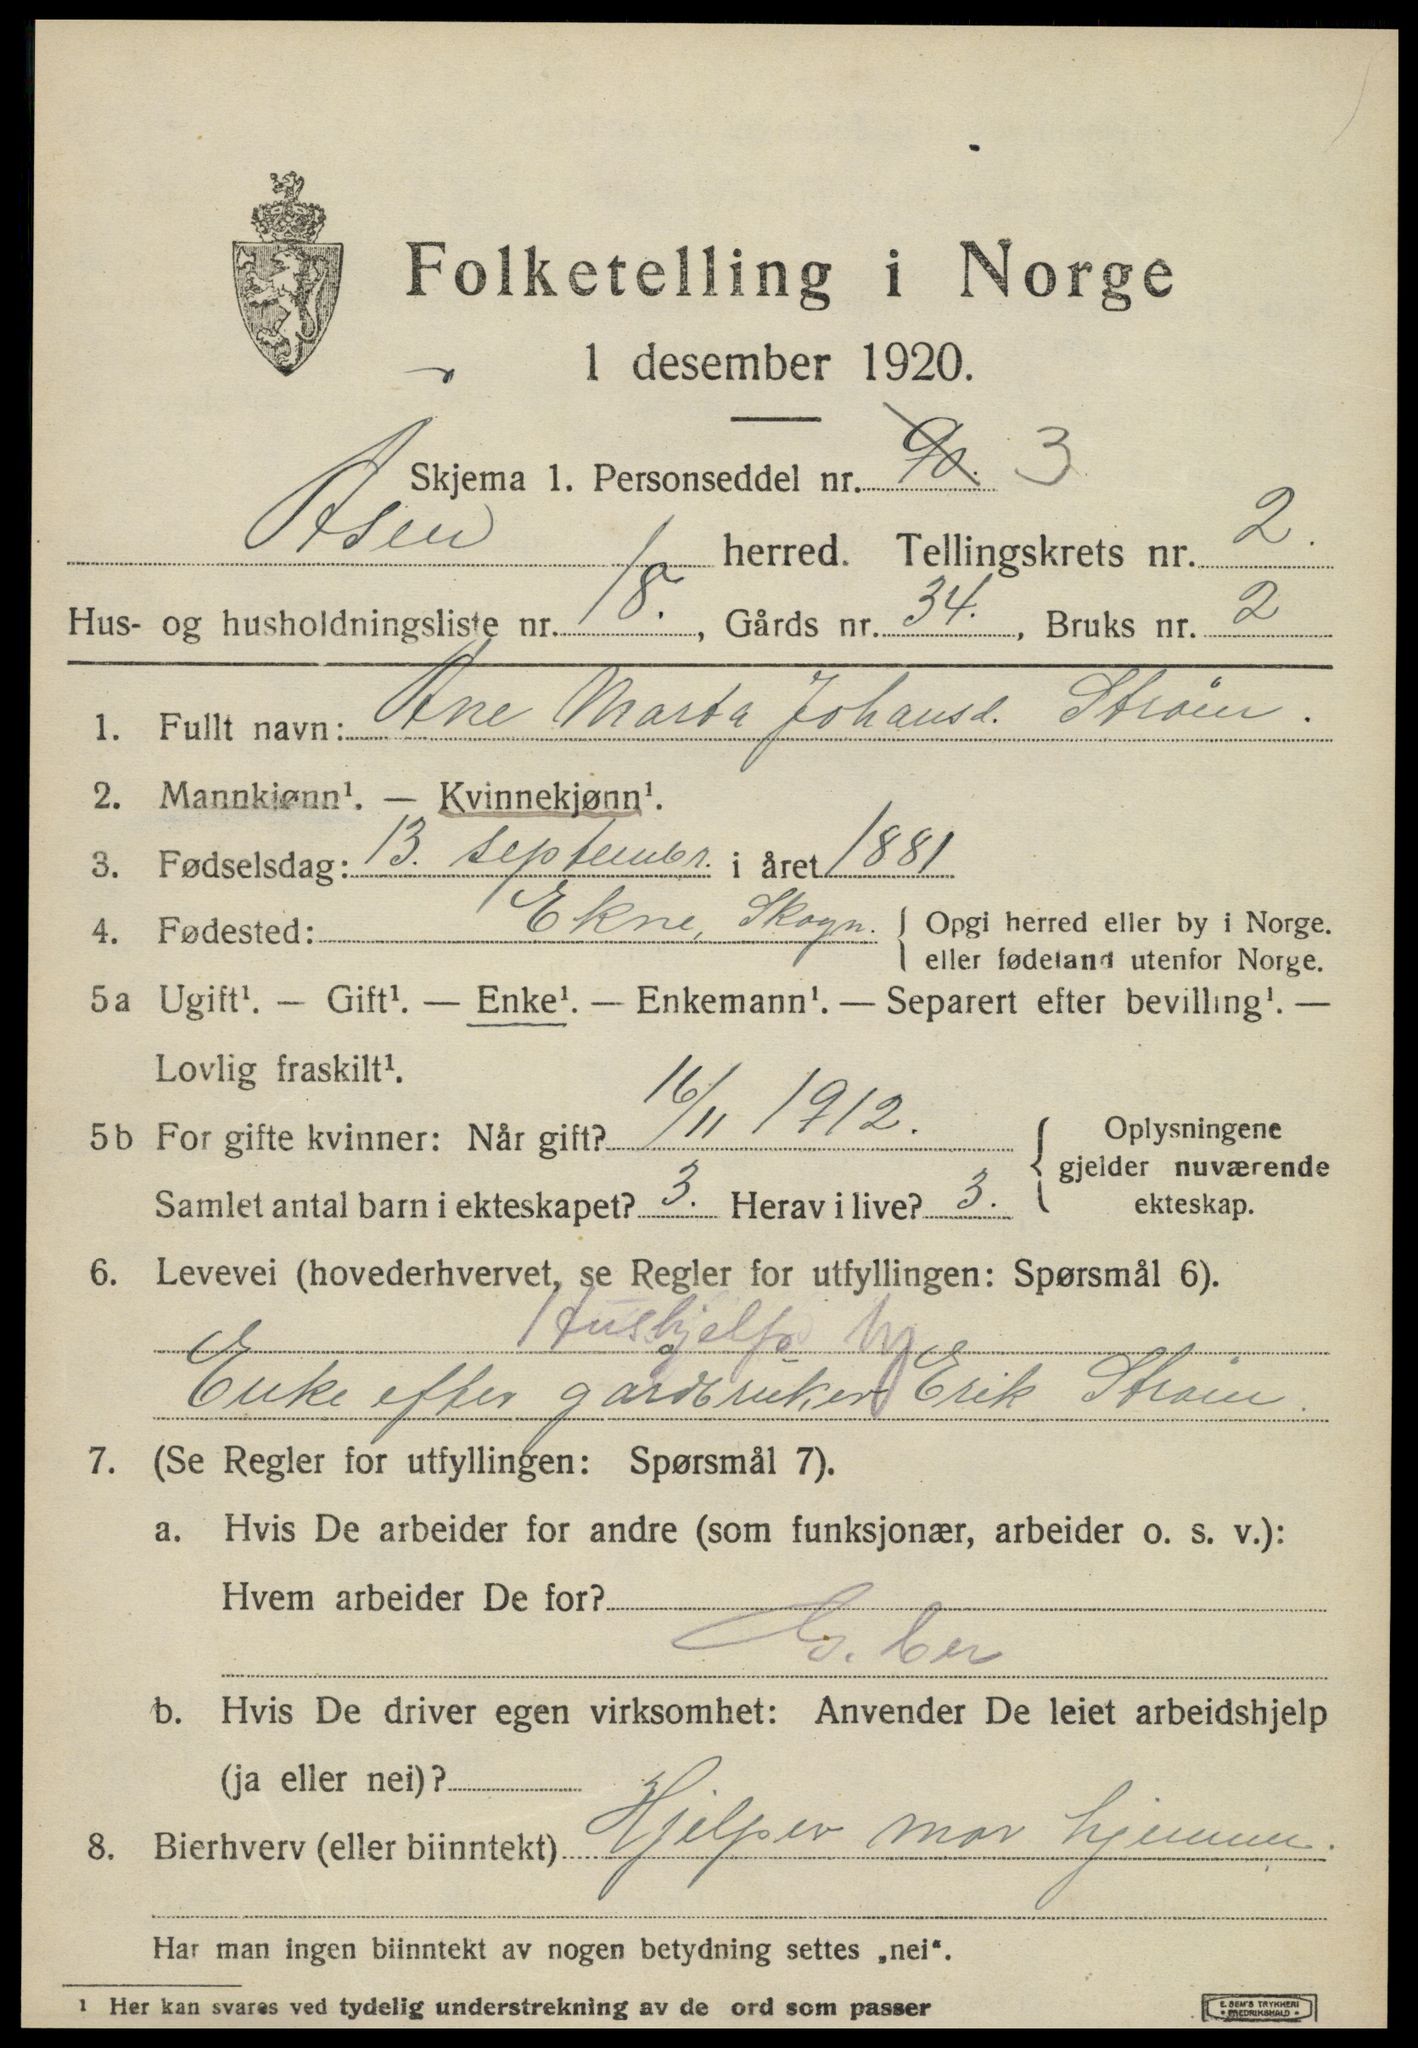 Folketelling i Norge
1 desember 1920.
Skjema 1. Personseddel nr. 3
Åsen herred. Tellingskrets nr. 2.
Hus- og husholdningsliste nr. 18., Gårds nr. 34., Bruks nr. 2
1. Fullt navn: Ane Marta Johansd. Strøm.
2. Mannkjønn¹. — Kvinnekjønn¹.
3. Fødselsdag: 13. septembr. i året 1881
4. Fødested: Ekne, Skogn. { Opgi herred eller by i Norge.
eller fødeland utenfor Norge.
5a Ugift¹. — Gift¹. — Enke¹. — Enkemann¹. — Separert efter bevilling¹. —
Lovlig fraskilt¹.
5b For gifte kvinner: Når gift? 16/11 1912. { Oplysningene
gjelder nuværende
Samlet antal barn i ekteskapet? 3. Herav i live? 3. ekteskap.
6. Levevei (hovederhvervet, se Regler for utfyllingen: Spørsmål 6).
Enke efter gårdbruker Erik Strøm.
7. (Se Regler for utfyllingen: Spørsmål 7).
a. Hvis De arbeider for andre (som funksjonær, arbeider o. s. v.):
Hvem arbeider De for?
b. Hvis De driver egen virksomhet: Anvender De leiet arbeidshjelp
(ja eller nei)?
8. Bierhverv (eller biinntekt) Hjelper mor hjemme.
Har man ingen biinntekt av nogen betydning settes „nei“.
1 Her kan svares ved tydelig understrekning av de ord som passer
E. SEM'S TRYKKERI
• FREDRIKSHALD •